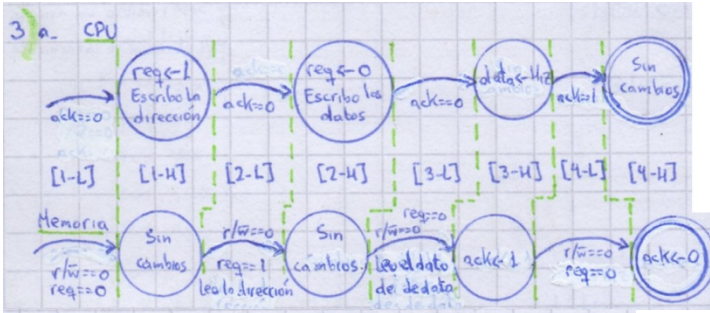 3) a_ CPU
req<-1
Escribo la
dirección
req<-0
Escribo los
datos
data<-HiZ
Sin
cambios
ack==0
ack==0
ack==0
ack==1
[1-L] [1-H] [2-L] [2-H] [3-L] [3-H] [4-L] [4-H]
Memoria
r/w̅==0
req==0
Sin
cambios
r/w̅==0
req==1
Leo la dirección
Sin
cambios
req==0
r/w̅==0
Leo el dato
de data
ack<-1
r/w̅==0
req==0
ack<-0